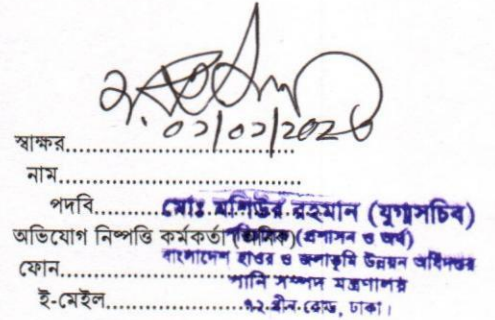 ০১/০১/২০২৬
স্বাক্ষর
নাম
পদবি
মোঃ মশিউর রহমান (যুগ্মসচিব)
অভিযোগ নিষ্পত্তি কর্মকর্তা (প্রশাসন ও অর্থ)
বাংলাদেশ হাওর ও জলাভূমি উন্নয়ন অধিদপ্তর
ফোন
পানি সম্পদ মন্ত্রণালয়
ই-মেইল
৭২ গ্রীন রোড, ঢাকা।